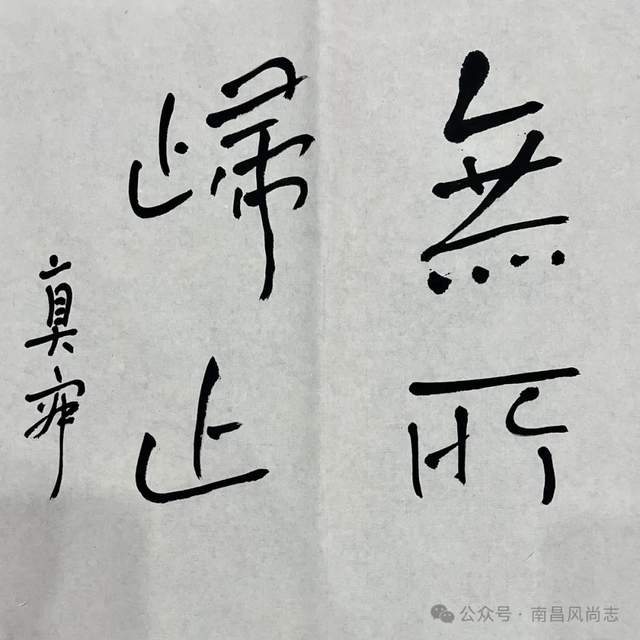 無所
歸止
真
公众号·南昌风尚志